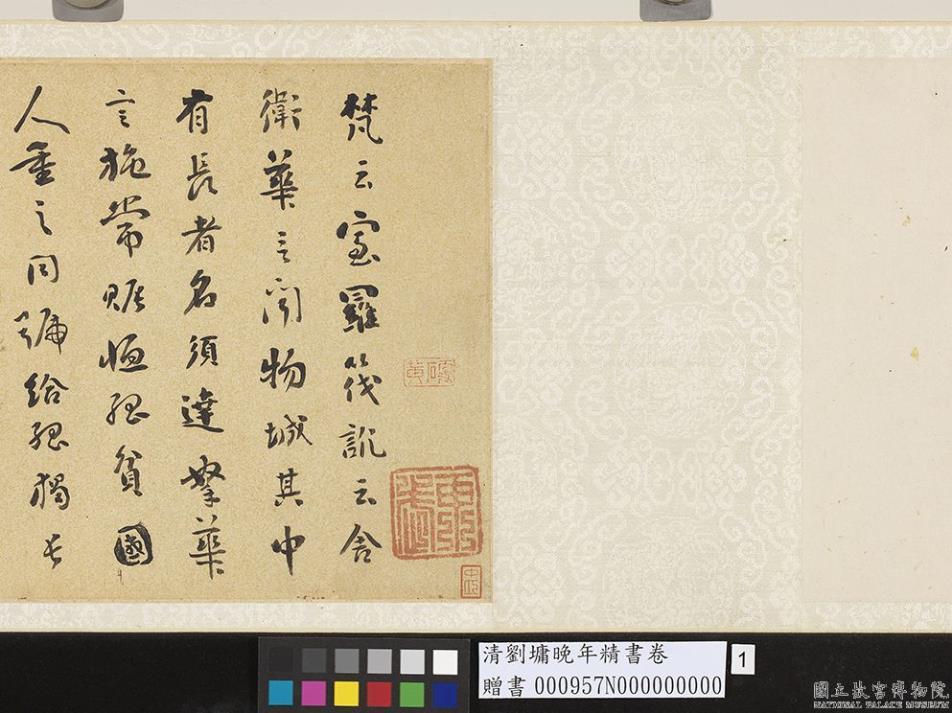 梵云室羅筏訛云舍
衛華言聞物城其中
有長者名須達拏華
言施常賑恤孤貧國
人重之同號給孤獨長
清劉墉晚年精書卷
贈書 000957N000000000
1
國立故宮博物院
NATIONAL PALACE MUSEUM